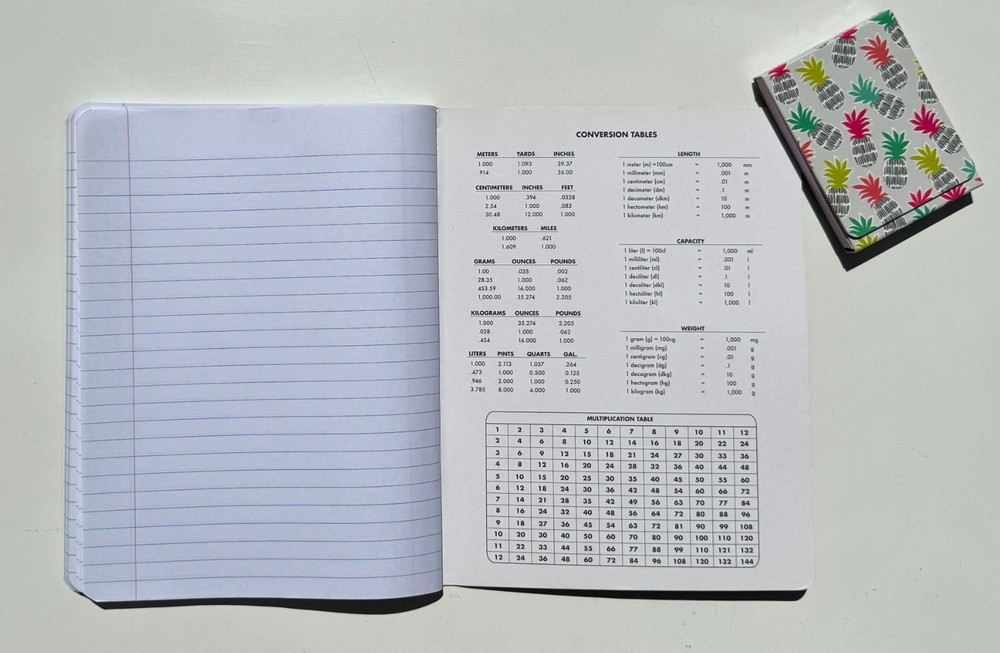 CONVERSION TABLES
METERS YARDS INCHES
1.000 1.093 39.37
.914 1.000 36.00
CENTIMETERS INCHES FEET
1.000 .394 .0328
2.54 1.000 .083
30.48 12.000 1.000
KILOMETERS MILES
1.000 .621
1.609 1.000
GRAMS OUNCES POUNDS
1.00 .035 .002
28.35 1.000 .062
453.59 16.000 1.000
1,000.00 35.274 2.205
KILOGRAMS OUNCES POUNDS
1.000 35.274 2.205
.028 1.000 .062
.454 16.000 1.000
LITERS PINTS QUARTS GAL.
1.000 2.113 1.057 .264
.473 1.000 0.500 0.125
.946 2.000 1.000 0.250
3.785 8.000 4.000 1.000
LENGTH
1 meter (m) =100cm = 1,000 mm
1 millimeter (mm) = .001 m
1 centimeter (cm) = .01 m
1 decimeter (dm) = .1 m
1 decameter (dkm) = 10 m
1 hectometer (hm) = 100 m
1 kilometer (km) = 1,000 m
CAPACITY
1 liter (l) = 100cl = 1,000 ml
1 milliliter (ml) = .001 l
1 centiliter (cl) = .01 l
1 deciliter (dl) = .1 l
1 decaliter (dkl) = 10 l
1 hectoliter (hl) = 100 l
1 kiloliter (kl) = 1,000 l
WEIGHT
1 gram (g) = 100cg = 1,000 mg
1 milligram (mg) = .001 g
1 centigram (cg) = .01 g
1 decigram (dg) = .1 g
1 decagram (dkg) = 10 g
1 hectogram (hg) = 100 g
1 kilogram (kg) = 1,000 g
MULTIPLICATION TABLE
1 2 3 4 5 6 7 8 9 10 11 12
2 4 6 8 10 12 14 16 18 20 22 24
3 6 9 12 15 18 21 24 27 30 33 36
4 8 12 16 20 24 28 32 36 40 44 48
5 10 15 20 25 30 35 40 45 50 55 60
6 12 18 24 30 36 42 48 54 60 66 72
7 14 21 28 35 42 49 56 63 70 77 84
8 16 24 32 40 48 56 64 72 80 88 96
9 18 27 36 45 54 63 72 81 90 99 108
10 20 30 40 50 60 70 80 90 100 110 120
11 22 33 44 55 66 77 88 99 110 121 132
12 24 36 48 60 72 84 96 108 120 132 144